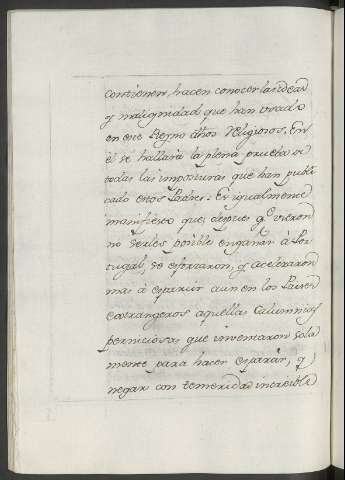 contienen, hacen conocer las ideas
y malignidad que han usado
en este Reyno dhos Religiosos. En
él se hallará la plena prueba de
todas las imposturas que han publi
cado estos Padres: Es igualmente
manifiesto que, despues qe vieron
no serles posible engañar à Por
tugal, se esforzaron, y aceleraron
mas à esparcir aun en los Paises
extrangeros aquellas Calumnias
perniciosas que inventaron sola
mente para hacer esparcir, y
negar con temeridad increible